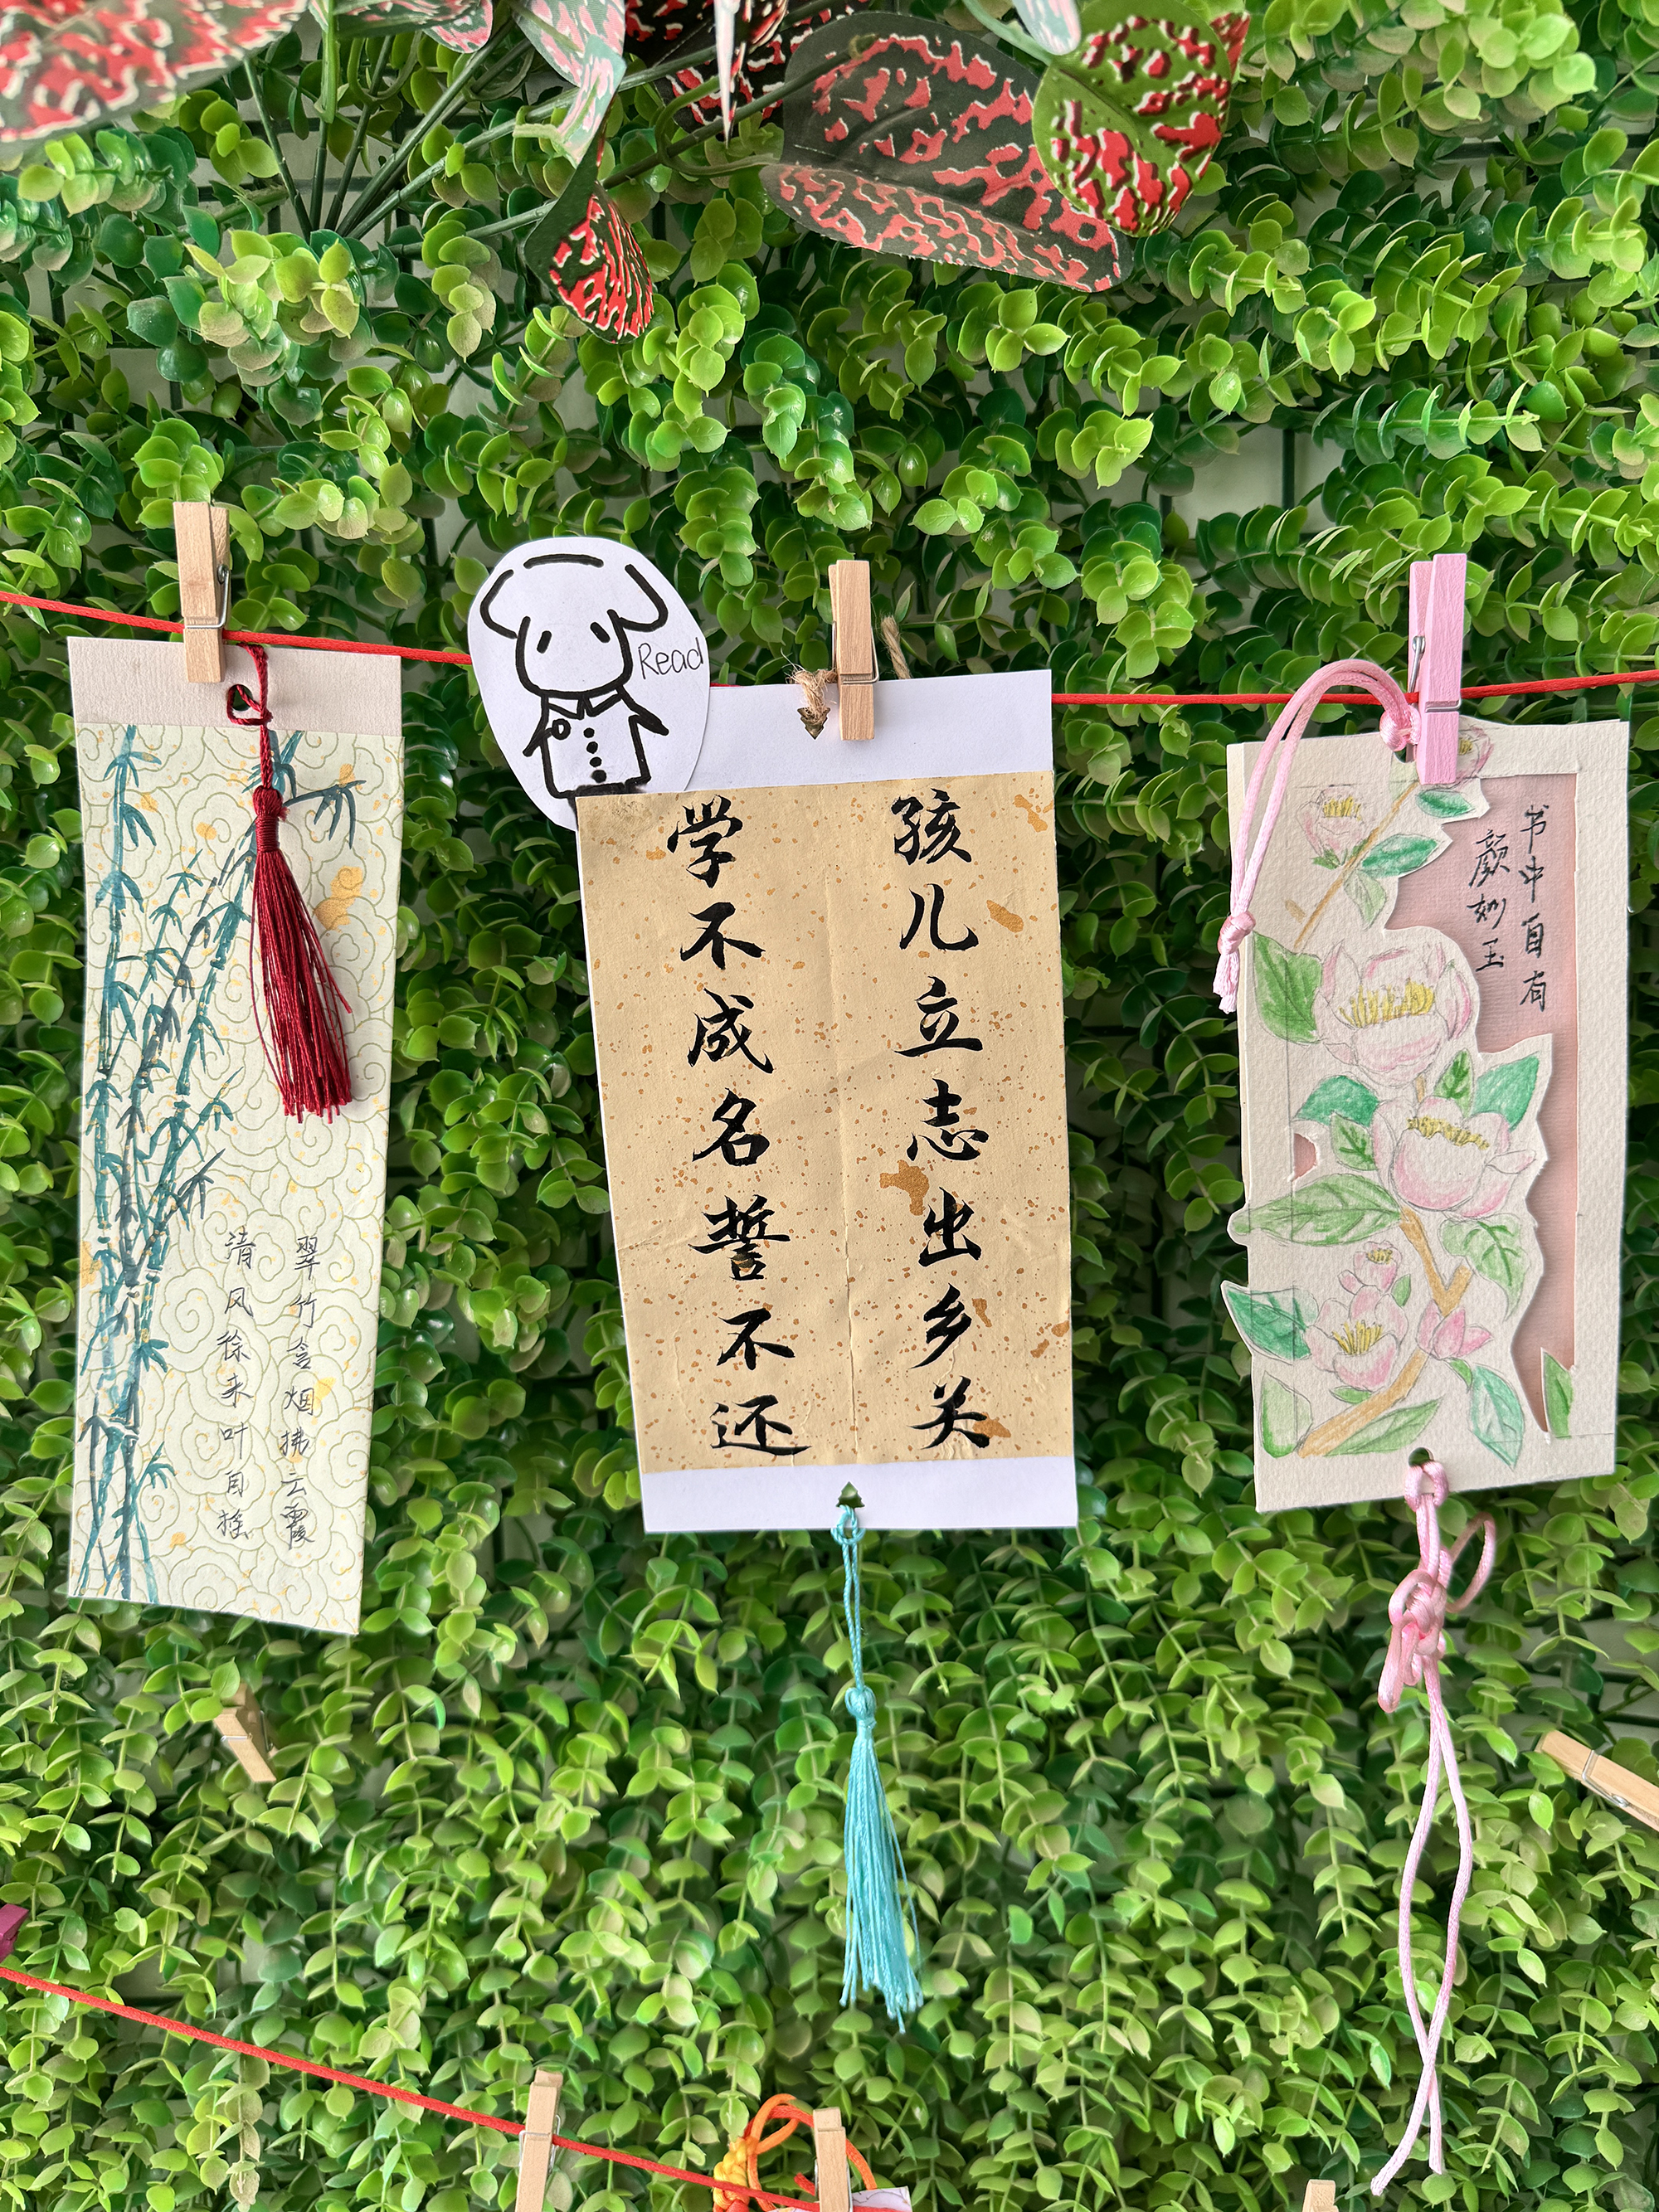 翠竹含烟拂云霞
清风徐来叶自摇
Read
孩儿立志出乡关
学不成名誓不还
书中自有
颜如玉